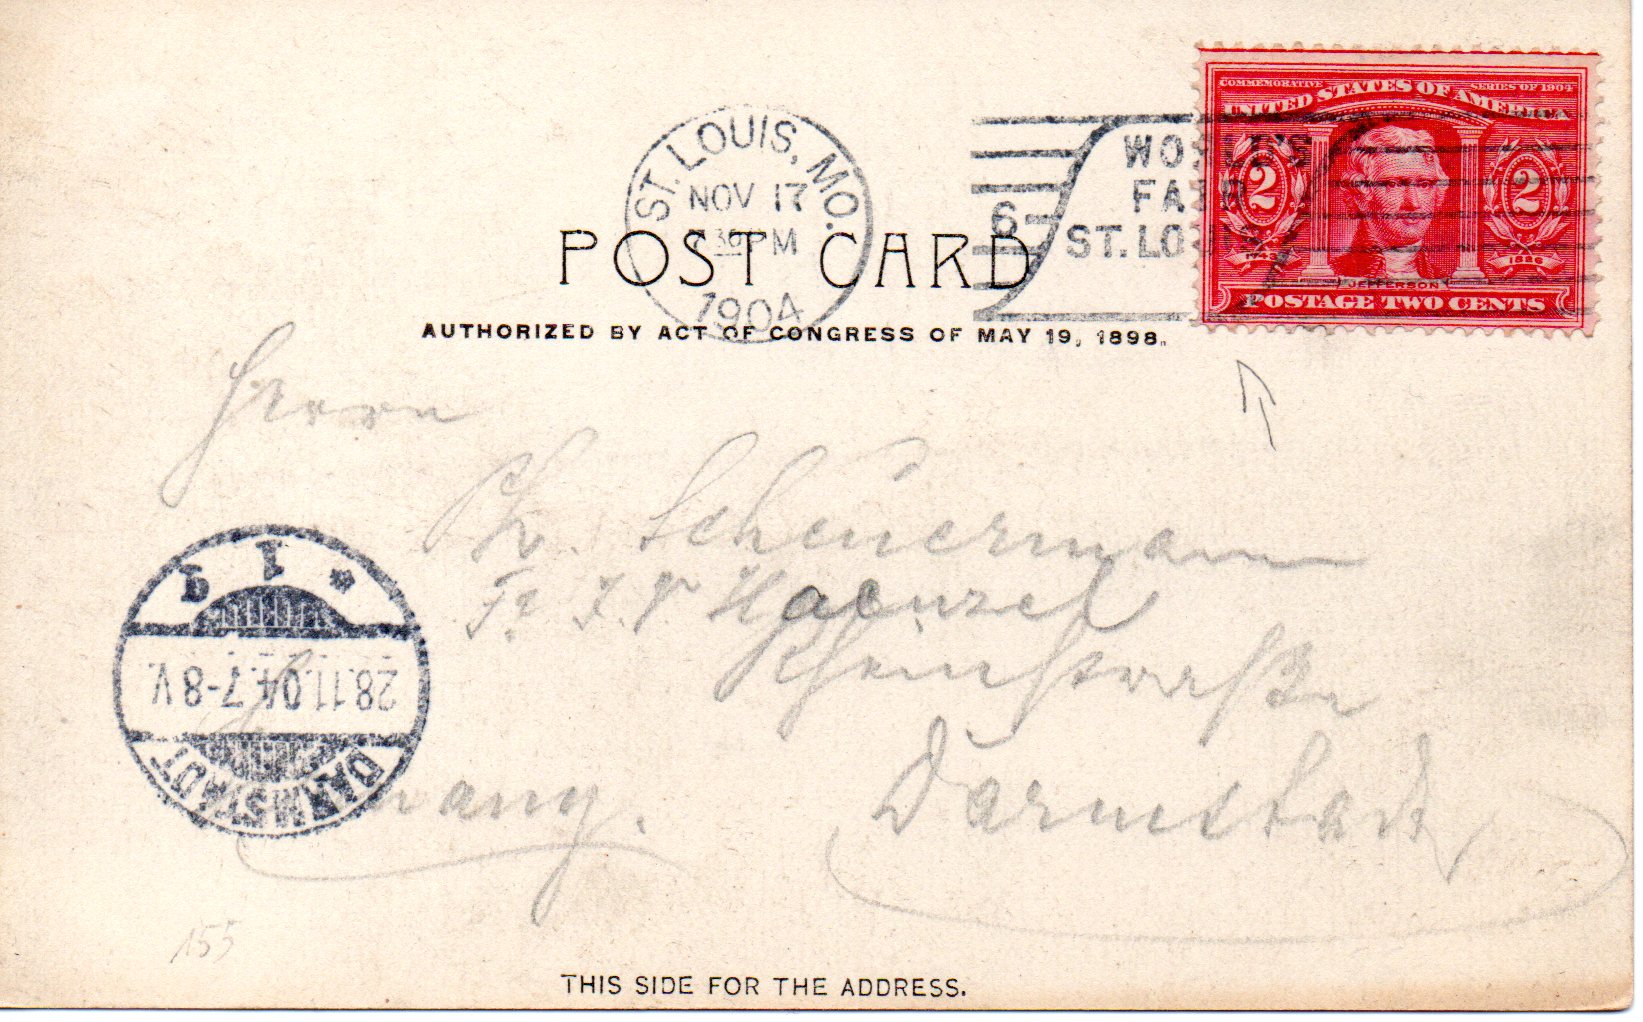 COMMEMORATIVE SERIES OF 1904
UNITED STATES OF AMERICA
2 2
1743 1826
JEFFERSON
POSTAGE TWO CENTS
ST. LOUIS, MO.
NOV 17
30 PM
1904
6
WORLD'S
FAIR
ST. LOUIS
POST CARD
AUTHORIZED BY ACT OF CONGRESS OF MAY 19, 1898.
Herrn
Ph. Scheuermann
Fa. J. P. Haenzel
Rheinstraße
Darmstadt
Germany.
DARMSTADT
28.11.04.7-8V.
* 1
155
THIS SIDE FOR THE ADDRESS.